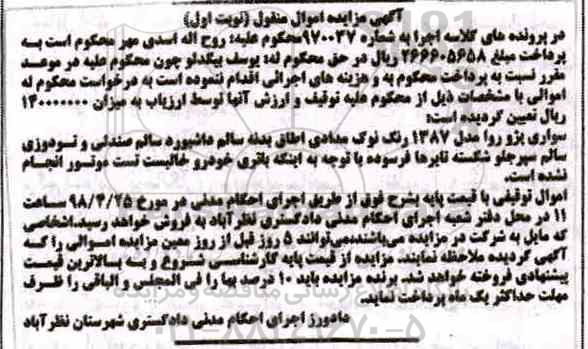 آگهی مزایده اموال منقول (نوبت اول)
در پرونده های کلاسه اجرا به شماره ۹۷۰۰۳۷محکوم علیه: روح اله اسدی مهر محکوم است به
پرداخت مبلغ ۲۶۶۶۰۵۶۵۸ ریال در حق محکوم له: یوسف بیگدلو چون محکوم علیه در موعد
مقرر نسبت به پرداخت محکوم به و هزینه های اجرائی اقدام ننموده است به درخواست محکوم له
اموالی با مشخصات ذیل از محکوم علیه توقیف و ارزش آنها توسط ارزیاب به میزان ۱۴۰۰۰۰۰۰۰
ریال تعیین گردیده است:
سواری پژو روا مدل ۱۳۸۷ رنگ نوک مدادی اطاق بدنه سالم داشبورد سالم صندلی و تودوزی
سالم سپر جلو شکسته تایرها فرسوده با توجه به اینکه باتری خودرو خالیست تست موتور انجام
نشده است.
اموال توقیفی با قیمت پایه بشرح فوق از طریق اجرای احکام مدنی در مورخ ۹۸/۴/۲۵ ساعت
۱۱ در محل دفتر شعبه اجرای احکام مدنی دادگستری نظرآباد به فروش خواهد رسید.اشخاصی
که مایل به شرکت در مزایده می‌باشند،می‌توانند ۵ روز قبل از روز معین مزایده اموالی را که
آگهی گردیده ملاحظه نمایند. مزایده از قیمت پایه کارشناسی شروع و به بالاترین قیمت
پیشنهادی فروخته خواهد شد. برنده مزایده باید ۱۰ درصد بها را فی المجلس و الباقی را ظرف
مهلت حداکثر یک ماه پرداخت نماید.
دادورز اجرای احکام مدنی دادگستری شهرستان نظرآباد